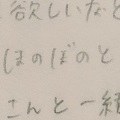 欲しいなと
ほのぼのと
さんと一緒